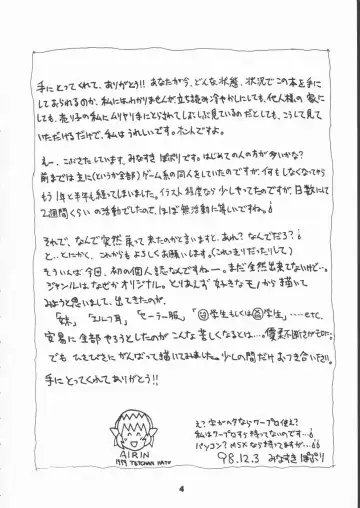 手にとってくれて、ありがとう!! あなたが今、どんな状態、状況でこの本を手に
しておられるのか、私にはわかりませんが、立ち読みの冷やかしにしても、他人様の家に
しても、売り子の私にムリヤリ手にとらされてしまいしぶしぶ見ているのだとしても、こうして見て
いただけるだけで、私はうれしいです。ホントですよ。
えー、ごぶさたしています、みなづき ぽぷりです。はじめての人の方が多いかな?
前までは主に(というか全部)ゲーム系の同人をしていたのですが、何もしなくなってから
もう1年と半年も経ってしまいました。イラスト程度なら少しやってたのですが、日数にして
2週間くらいの活動でしたので、ほぼ無活動に等しいですね。
それで、なんで突然戻って来たのかと言いますと、あれ?なんでだろ?
と…とにかく、これからもよろしくお願いします。(これっきりだったりして)
そういえば今回、初の個人誌なんですねー。まだ全然出来てないけど…。
ジャンルはなぜかオリジナル。とりあえず好きなモノから描いて
みようと思いまして、出てきたのが、
「妹」「エルフ耳」「セーラー服」「㊥学生もしくは㊤学生」……etc.
安易に全部やろうとしたのがこんな苦しくなるとは…。優柔不断さがモロに。
でもひさびさにがんばって描いてみました。少しの間だけおつき合い下さい。
手にとってくれてありがとう!!
AIRIN
え?字がヘタならワープロ使え?
私はワープロすら持ってないのです…
パソコン?MSXなら持ってますが…
98.12.3 みなづき ぽぷり
4